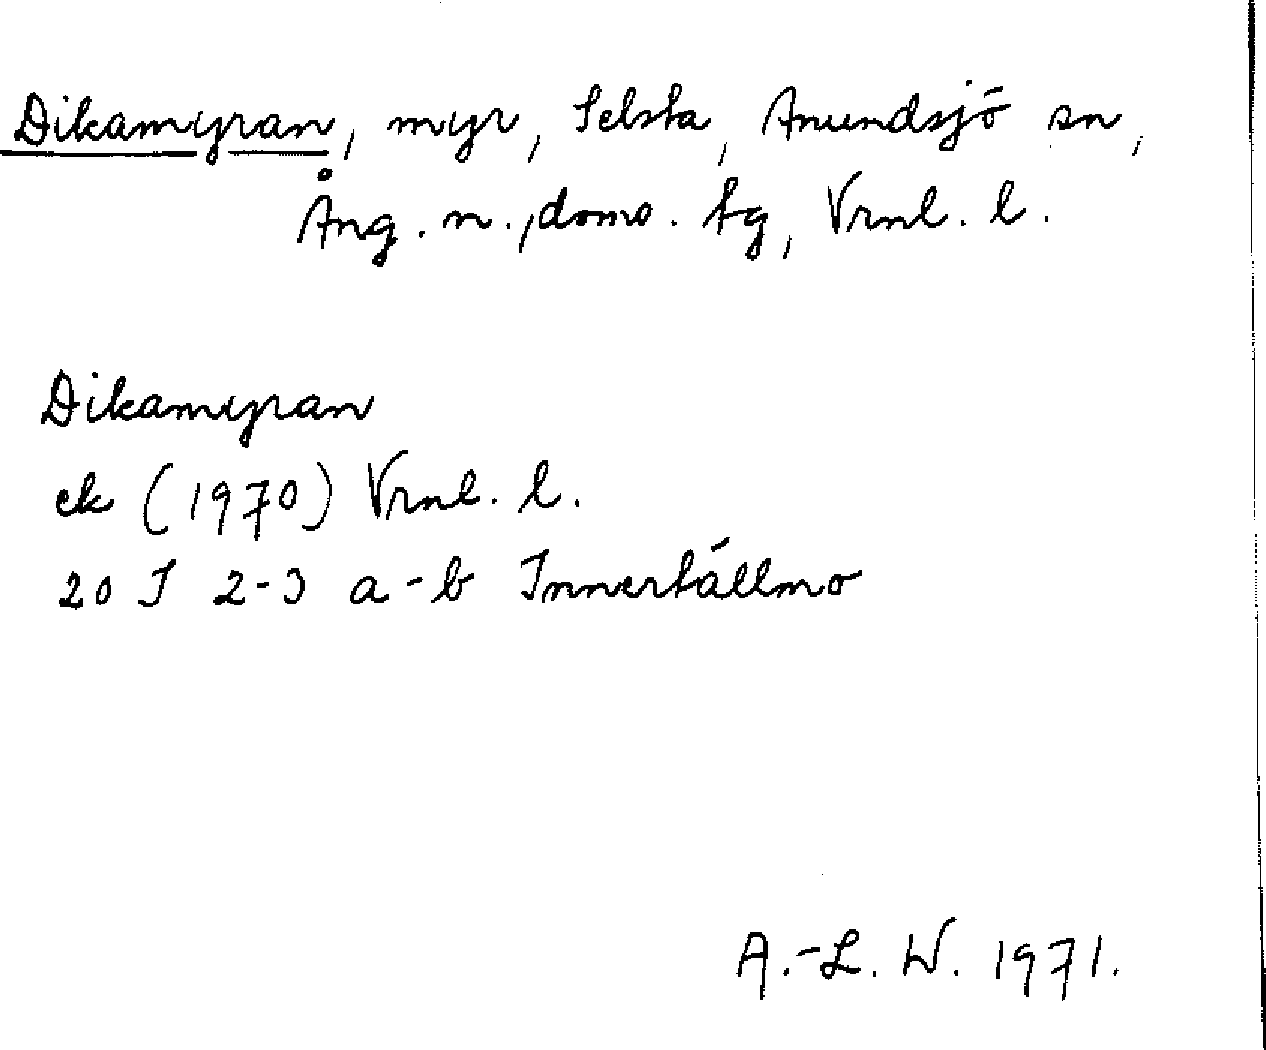 Dikamyran, myr, Selsta, Anundsjö sn,
Ång. n., doms. tg, Vrnl. l.
Dikamyran
ek (1970) Vrnl. l.
20 J 2-3 a-b Innertällmo
A.-L. W. 1971.